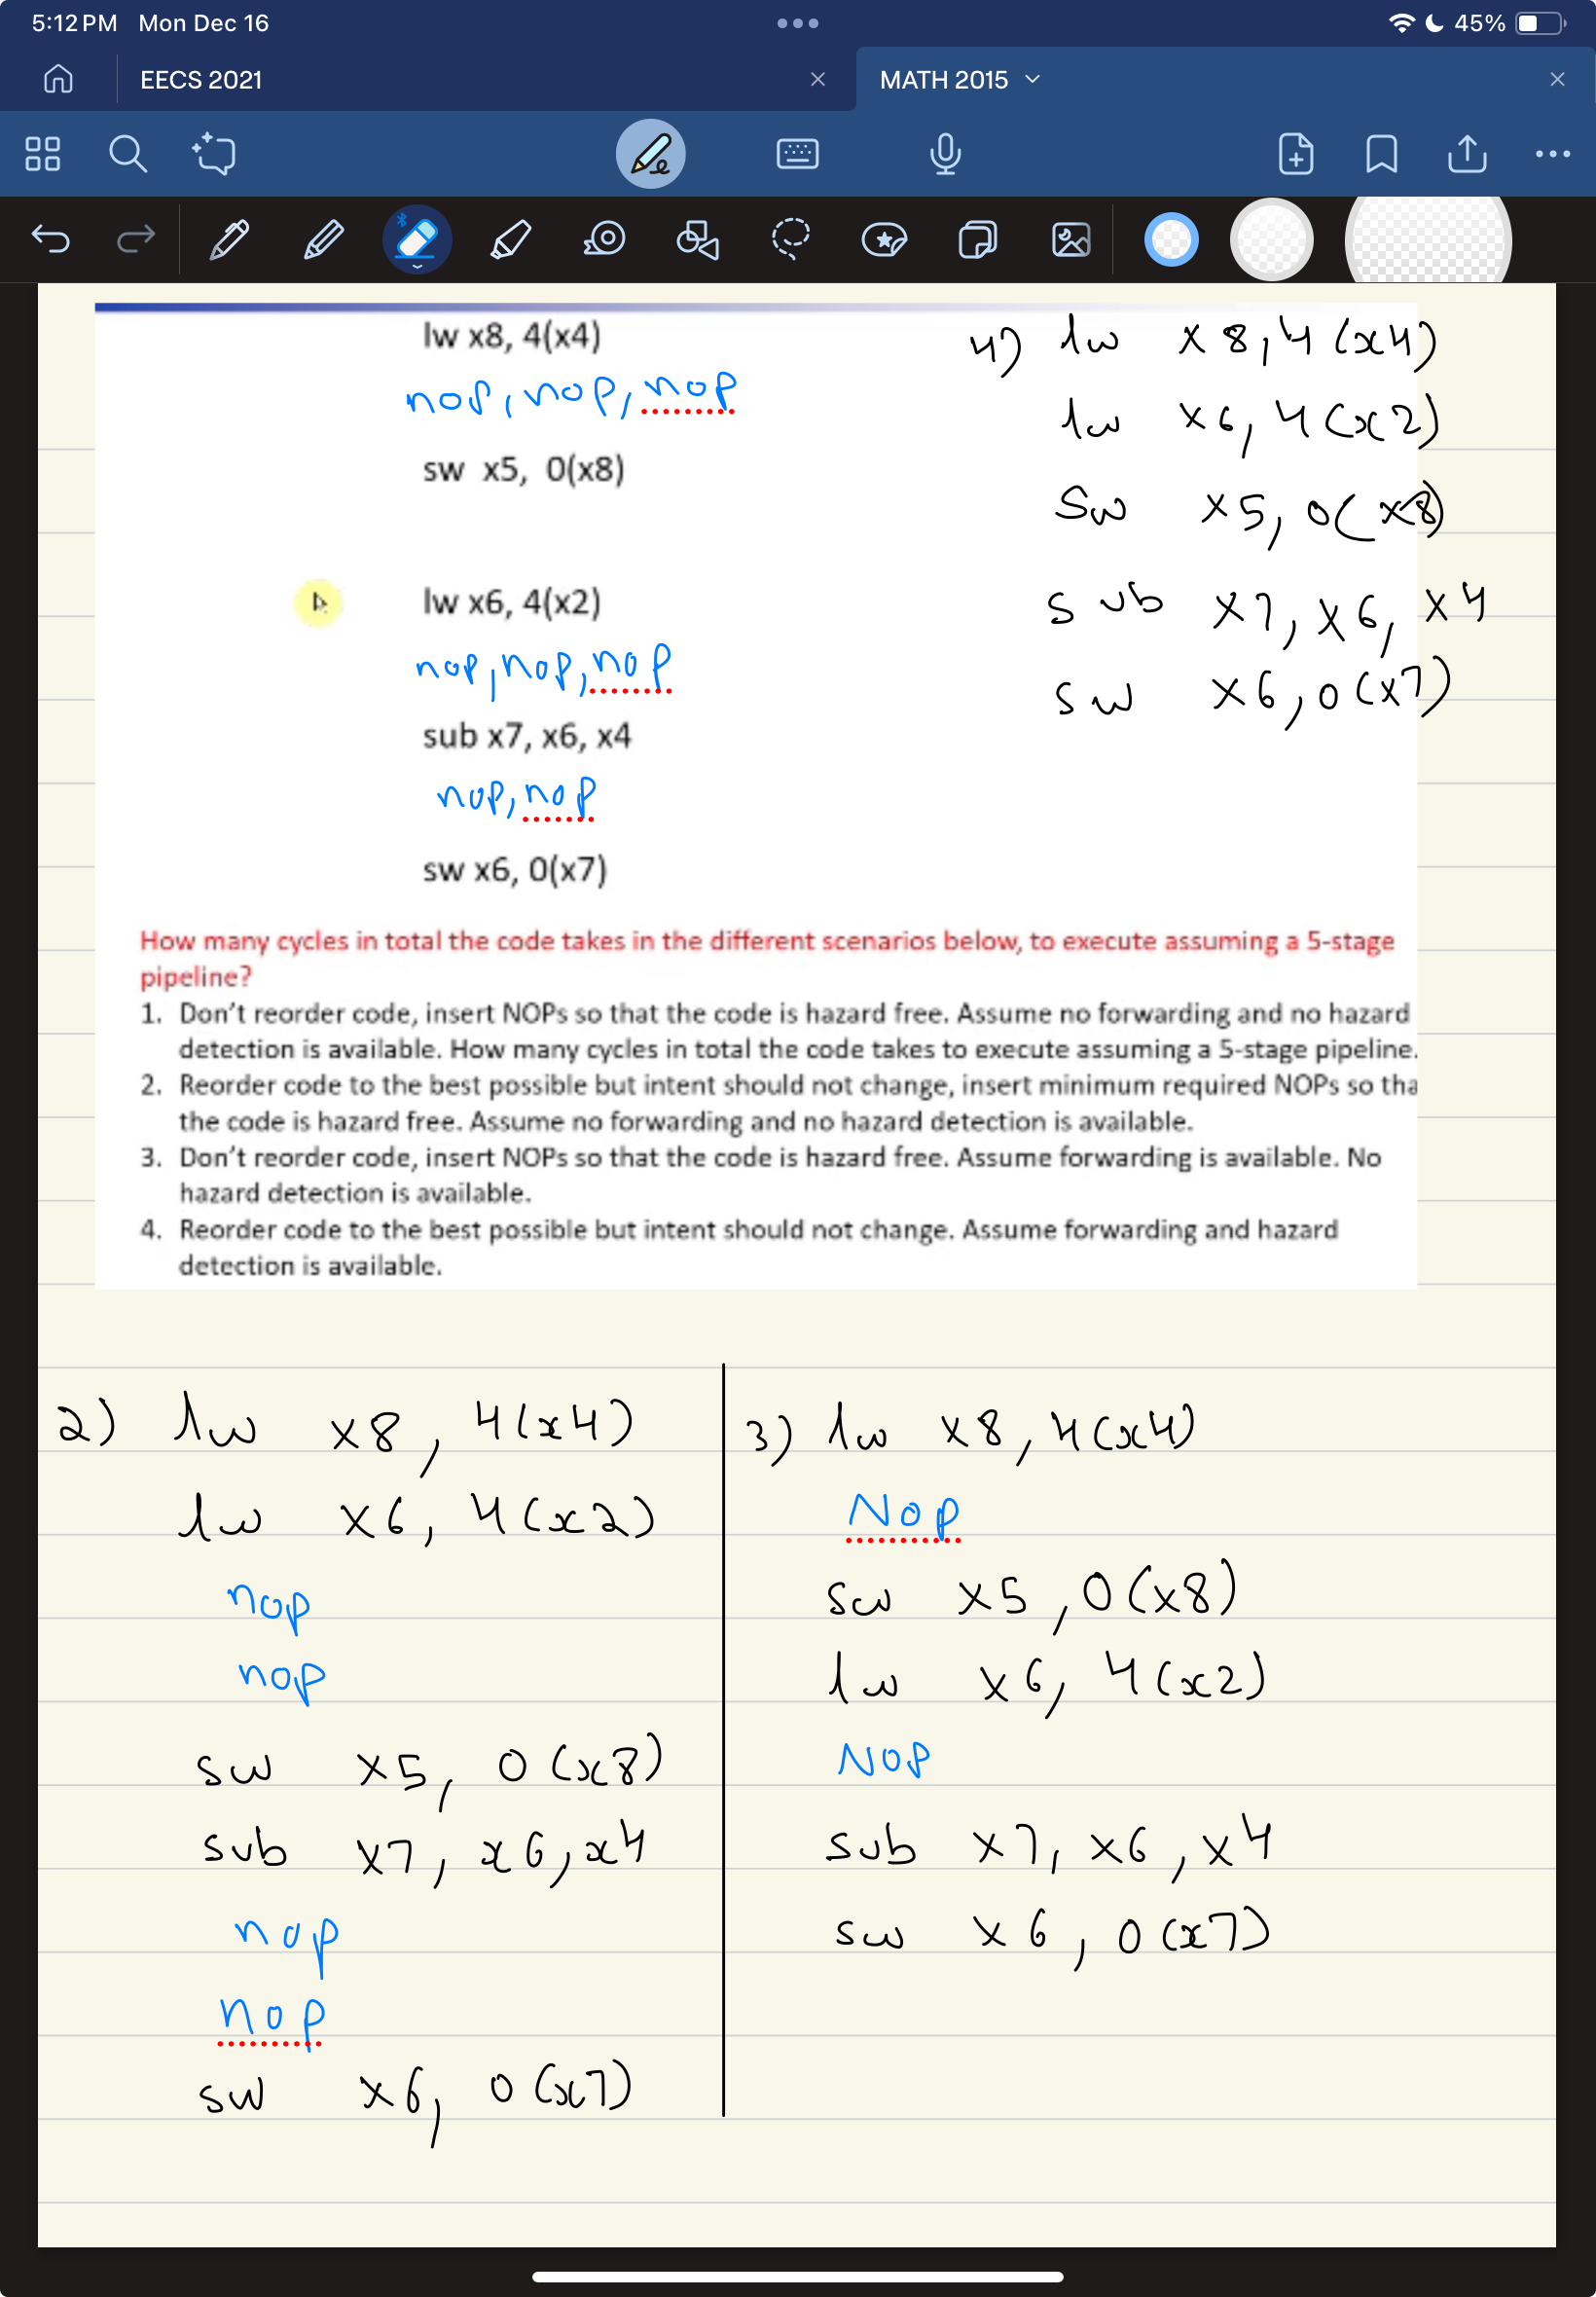 5:12 PM Mon Dec 16 45%
EECS 2021 MATH 2015
lw x8, 4(x4)
nop, nop, nop
sw x5, 0(x8)
lw x6, 4(x2)
nop, nop, nop
sub x7, x6, x4
nop, nop
sw x6, 0(x7)
4) lw x8, 4(x4)
lw x6, 4(x2)
sw x5, 0(x8)
sub x7, x6, x4
sw x6, 0(x7)
How many cycles in total the code takes in the different scenarios below, to execute assuming a 5-stage
pipeline?
1. Don't reorder code, insert NOPs so that the code is hazard free. Assume no forwarding and no hazard
detection is available. How many cycles in total the code takes to execute assuming a 5-stage pipeline.
2. Reorder code to the best possible but intent should not change, insert minimum required NOPs so tha
the code is hazard free. Assume no forwarding and no hazard detection is available.
3. Don't reorder code, insert NOPs so that the code is hazard free. Assume forwarding is available. No
hazard detection is available.
4. Reorder code to the best possible but intent should not change. Assume forwarding and hazard
detection is available.
2) lw x8, 4(x4)
lw x6, 4(x2)
nop
nop
sw x5, 0(x8)
sub x7, x6, x4
nop
nop
sw x6, 0(x7)
3) lw x8, 4(x4)
Nop
sw x5, 0(x8)
lw x6, 4(x2)
NOP
sub x7, x6, x4
sw x6, 0(x7)